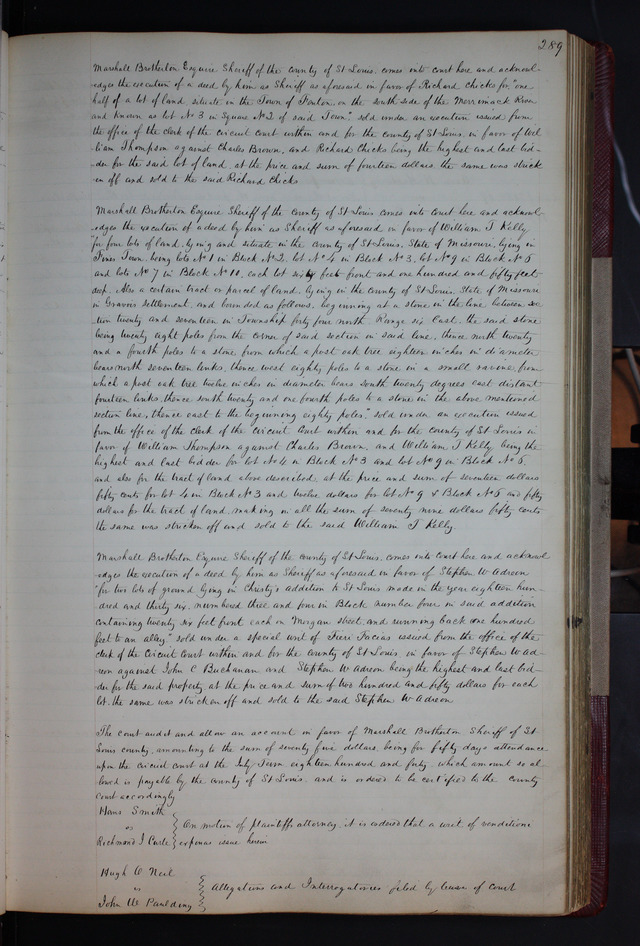 289
Marshall Brotherton Esquire Sheriff of the county of St Louis. comes into court here and acknowl-
-edges the execution of a deed by him as Sheriff as aforesaid in favor of Richard Chicks for, "one
half of a lot of land, situate in the Town of Fenton, on the south side of the Merrimack River
and known as lot No 3 in Square No 2 of said Town" sold under an execution issued from
the office of the clerk of the circuit court within and for the county of St Louis, in favor of Wil-
liam Thompson against Charles Brown, and Richard Chicks being the highest and last bid-
-der for the said lot of land, at the price and sum of fourteen dollars the same was strick-
en off and sold to the said Richard Chicks
Marshall Brotherton Esquire Sheriff of the county of St Louis comes into court here and acknowl-
-edges the execution of a deed by him as Sheriff as aforesaid in favor of William T Kelly
for four lots of land, lying and situate in the county of St Louis, State of Missouri, lying in
Town, being lots No 1 in Block No 2, lot No 4 in Block No 3, lot No 9 in Block No 5
and lots No 7 in Block No 11, each lot sixty feet front and one hundred and fifty feet
deep. Also a certain tract or parcel of land, lying in the county of St Louis, State of Missouri
in Gravois settlement, and bounded as follows, beginning at a stone in the line between sec
tion twenty and seventeen in Township forty four north, Range six East, the said stone
being twenty eight poles from the corner of said section in said line, thence north twenty
and a fourth poles to a stone from which a post oak tree eighteen inches in diameter
bears north seventeen links, thence west eighty poles to a stone in a small ravine, from
which a post oak tree twelve inches in diameter bears South twenty degrees east distant
fourteen links, thence south twenty and one fourth poles to a stone in the above mentioned
section line, thence east to the beginning eighty poles" sold under an execution issued
from the office of the clerk of the Circuit Court within and for the county of St Louis in
favor of William Thompson against Charles Brown, and William T Kelly being the
highest and last bidder for lot No 4 in Block No 3 and lot No 9 in Block No 5,
and also for the tract of land above described, at the price and sum of seventeen dollars
fifty cents for lot 4 in Block No 3 and twelve dollars for lot No 9 Block No 5 and fifty
dollars for the tract of land, making in all the sum of seventy nine dollars fifty cents
the same was stricken off and sold to the said William T Kelly
Marshall Brotherton Esquire Sheriff of the county of St Louis, comes into court here and acknowl
-edges the execution of a deed by him as Sheriff as aforesaid in favor of Stephen W Adreon
"for two lots of ground lying in Christy's addition to St Louis made in the year eighteen hun-
dred and thirty six, numbered three and four in Block number four in said addition
containing twenty six feet front each on Morgan street, and running back one hundred
feet to an alley" sold under a special writ of Fieri Facias issued from the office of the
clerk of the Circuit Court within and for the county of St Louis in favor of Stephen W Ad-
reon against John C Buchanan and Stephen W Adreon being the highest and last bid-
-der for the said property at the price and sum of two hundred and fifty dollars for each
lot, the same was stricken off and sold to the said Stephen W Adreon
The court audit and allow an account in favor of Marshall Brotherton Sheriff of St
Louis county, amounting to the sum of seventy five dollars, being for fifty days attendance
upon the circuit court at the July Term eighteen hundred and forty which amount so al
lowed is payable by the county of St Louis, and is ordered to be certified to the county
court accordingly
Smith
vs
Richmond J Curle
On motion of plaintiffs attorney, it is ordered that a writ of venditioni
exponas issue herein
Hugh O Neil
vs
John W Paulding
Allegations and Interrogatories filed by leave of court